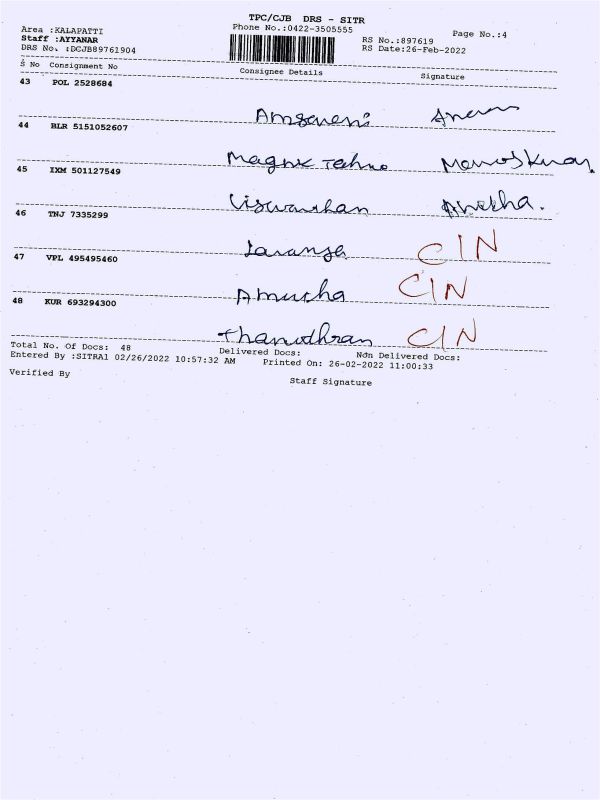 TPC/CJB DRS - SITR
Area :KALAPATTI
Phone No.:0422-3505555
Page No.:4
Staff :AYYANAR
RS No.:897619
DRS No. :DCJB89761904
RS Date:26-Feb-2022
S No Consignment No
Consignee Details
Signature
43 POL 2528684
44 BLR 5151052607
Magnx Techno
45 IXM 501127549
Viswanthan
46 TNJ 7335299
CIN
47 VPL 495495460
Amucha CIN
48 KUR 693294300
CIN
Total No. Of Docs: 48
Delivered Docs:
Non Delivered Docs:
Entered By :SITRA1 02/26/2022 10:57:32 AM
Printed On: 26-02-2022 11:00:33
Verified By
Staff Signature